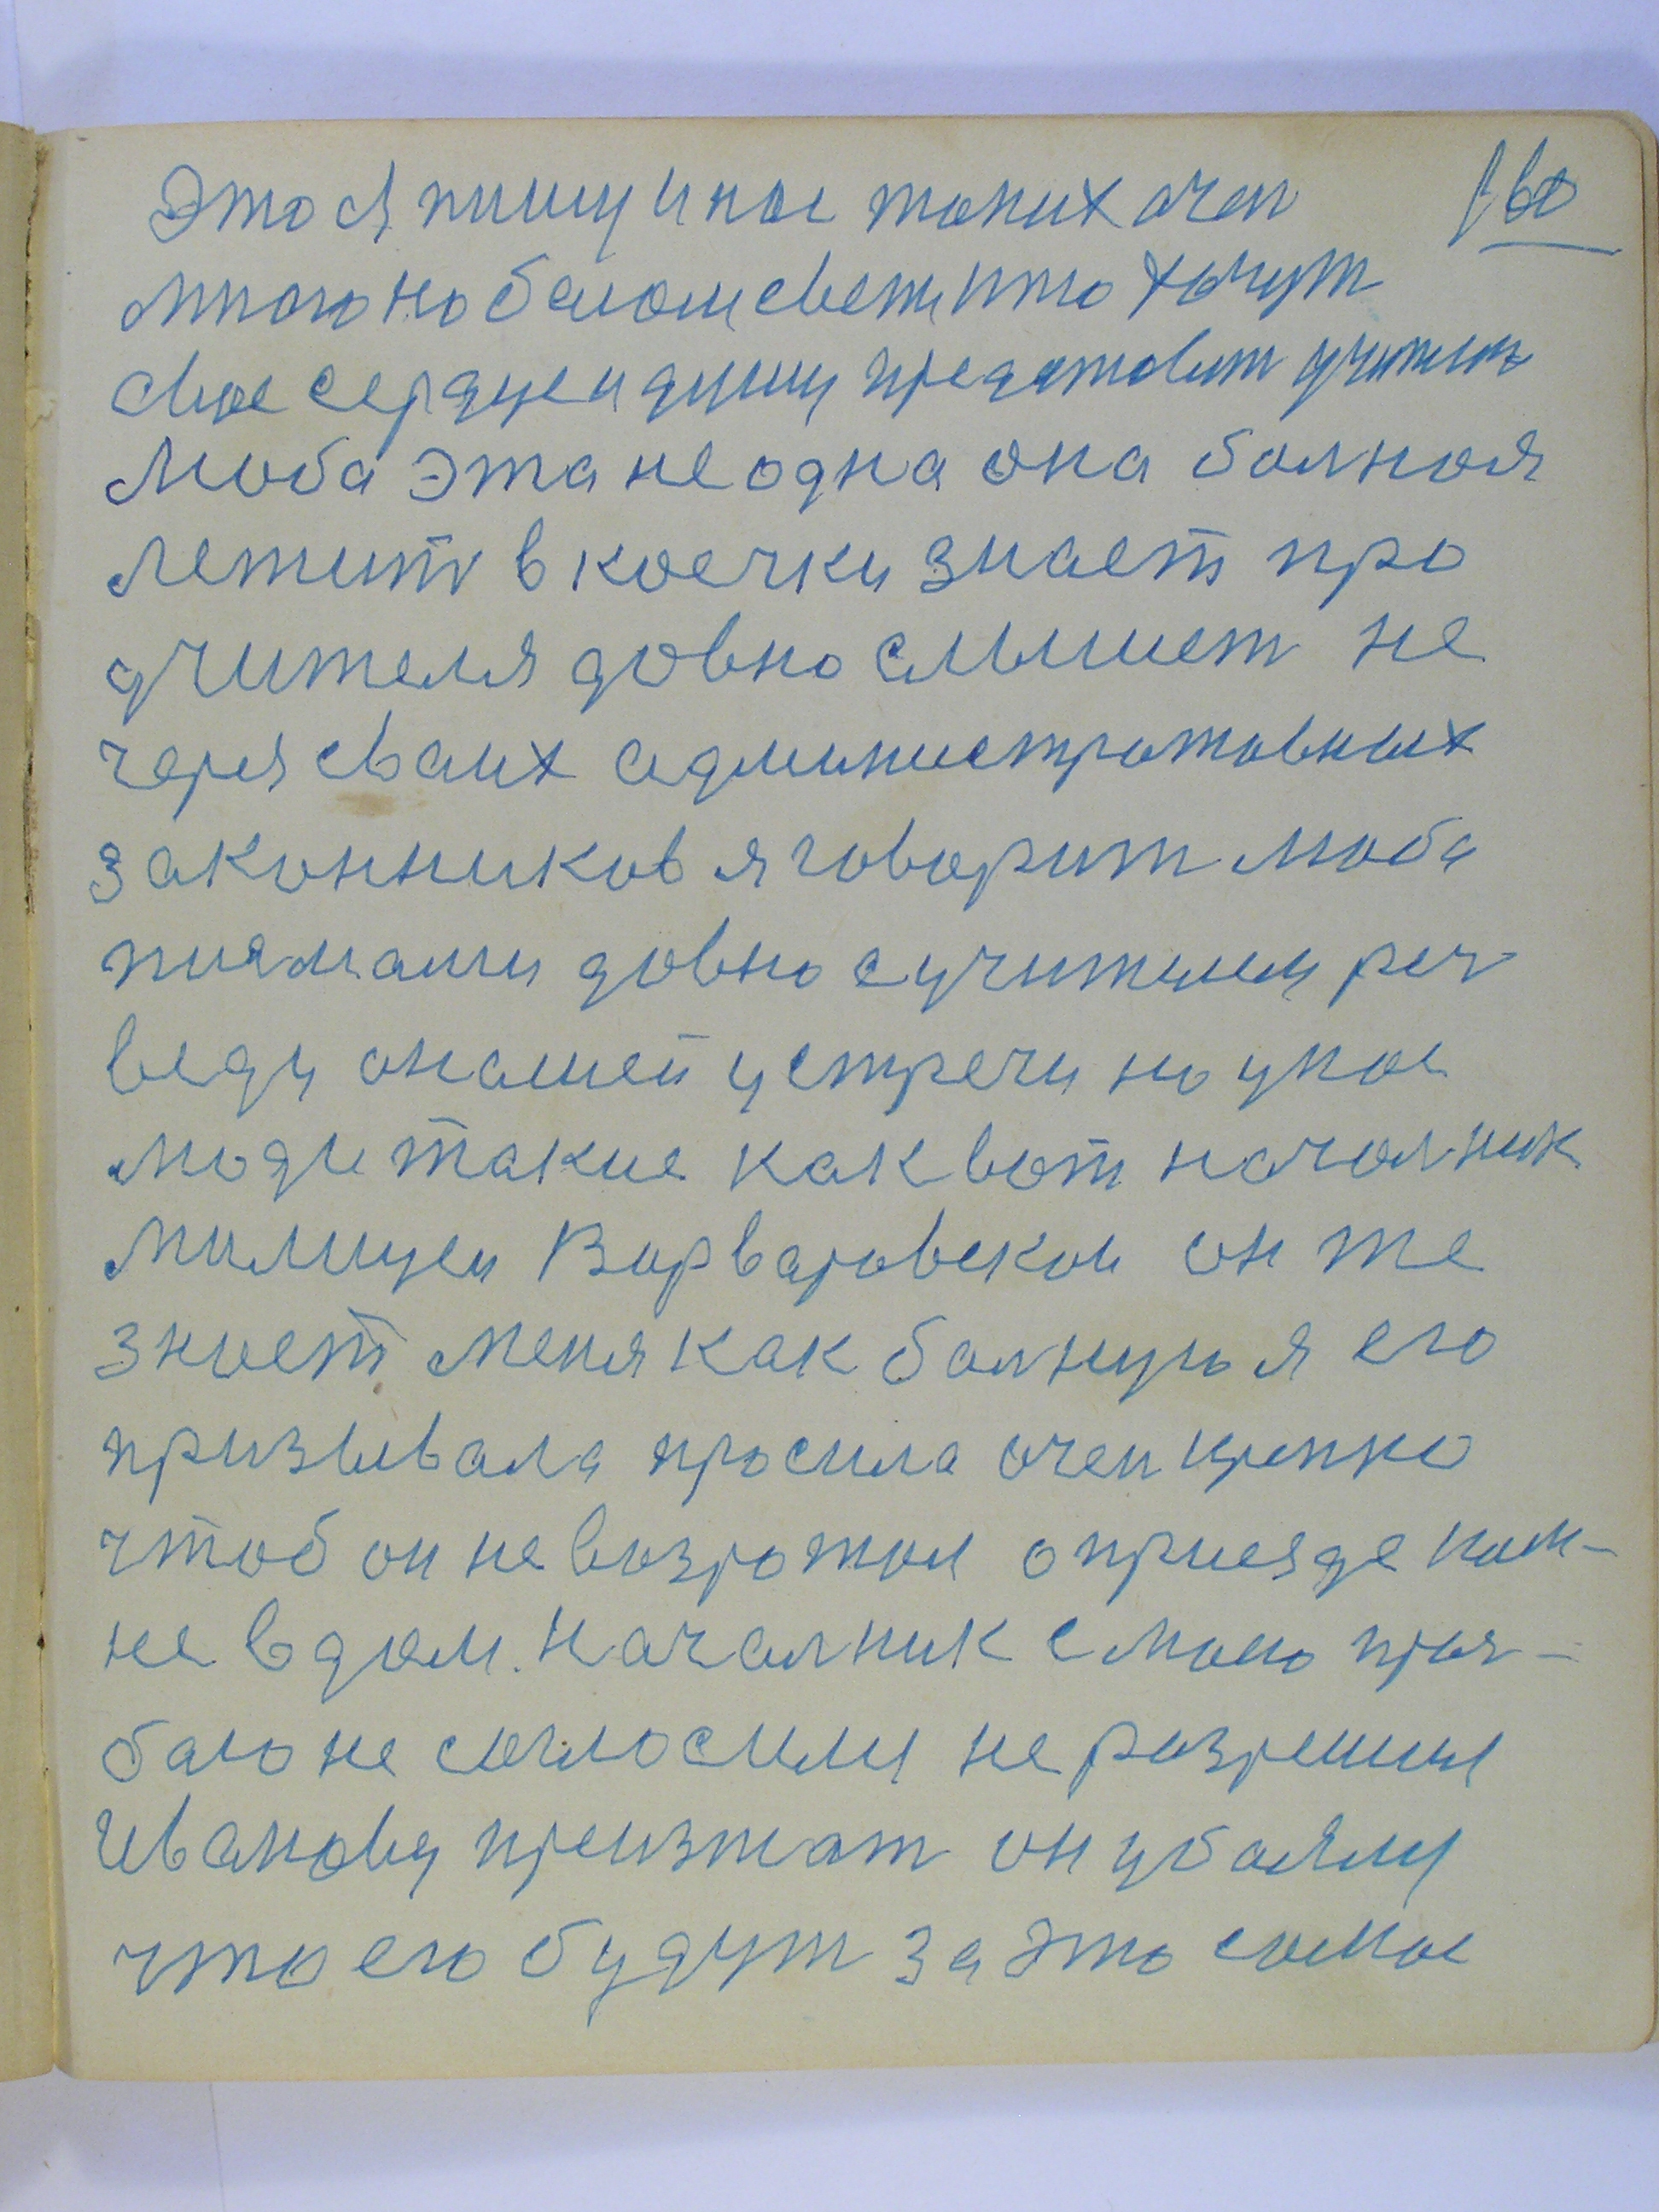 Это я пишу и нас таких очен 160
много на белом свети кто хочут
свое сердце и душу представит учителю
Люба эта не одна она болная
лежит в коечки знает про
учителя давно слышет не
черяз сваих административных
законников я говорит Люба
писмами давно с учителем реч
веду о нашей устречи но у нас
люди такие как вот началник
милицеи Варваровской он же
знает меня как болную я его
призывала просила очен крепко
чтоб он не возражал о приезде ком-
не в дом. Началник с моею прос-
бою не согласился не разрешил
Иванову преизжат он убоялся
что его будут за это самое